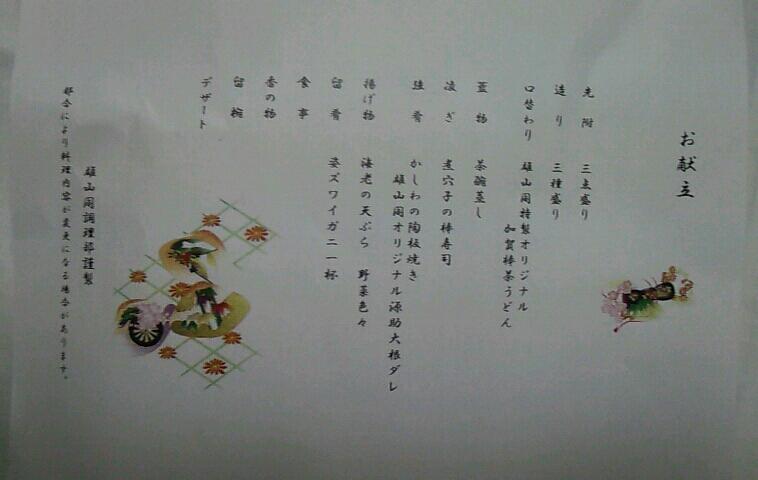 お献立
先附 三点盛り
造り 三種盛り
口替わり 雄山閣特製オリジナル
加賀棒茶うどん
蓋物 茶碗蒸し
凌ぎ 煮穴子の棒寿司
強肴 かしわの陶板焼き
雄山閣オリジナル源助大根ダレ
揚げ物 海老の天ぷら 野菜色々
留肴 姿ズワイガニ一杯
食事
香の物
留椀
デザート
雄山閣調理部謹製
都合により料理内容が変更になる場合があります。